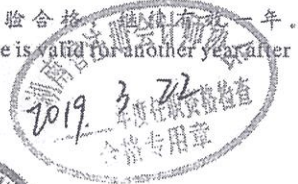 验合格，继续有效一年。
e is valid for another year after
湖南省注册会计师协会
2019. 3. 22
年度任职资格检查
合格专用章